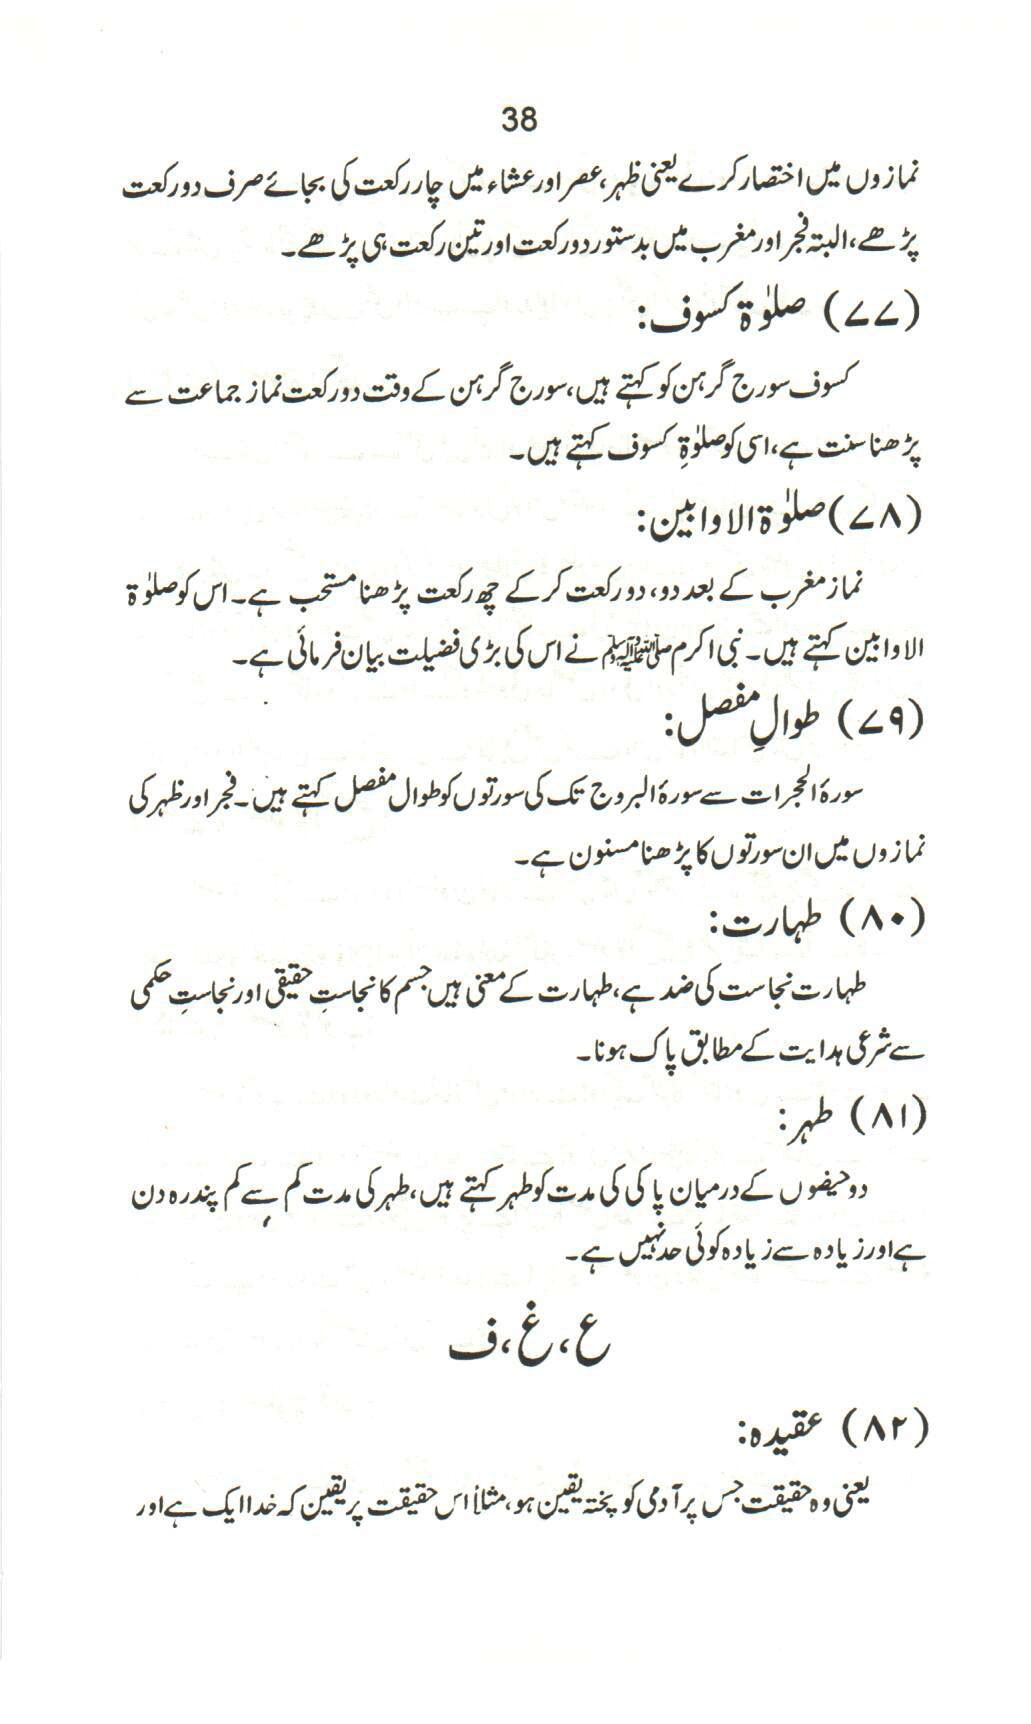 38
نمازوں میں اختصار کرے یعنی ظہر، عصر اور عشاء میں چار رکعت کی بجائے صرف دو رکعت
پڑھے، البتہ فجر اور مغرب میں بدستور دو رکعت اور تین رکعت ہی پڑھے۔
(۷۷) صلوٰۃ کسوف:
کسوف سورج گرہن کو کہتے ہیں، سورج گرہن کے وقت دو رکعت نماز جماعت سے
پڑھنا سنت ہے، اسی کو صلوٰۃِ کسوف کہتے ہیں۔
(۷۸) صلوٰۃ الاوابین:
نماز مغرب کے بعد دو، دو رکعت کر کے چھ رکعت پڑھنا مستحب ہے۔ اس کو صلوٰۃ
الاوابین کہتے ہیں۔ نبی اکرم ﷺ نے اس کی بڑی فضیلت بیان فرمائی ہے۔
(۷۹) طوالِ مفصل:
سورۂ الحجرات سے سورۂ البروج تک کی سورتوں کو طوال مفصل کہتے ہیں۔ فجر اور ظہر کی
نمازوں میں ان سورتوں کا پڑھنا مسنون ہے۔
(۸۰) طہارت:
طہارت نجاست کی ضد ہے، طہارت کے معنی ہیں جسم کا نجاستِ حقیقی اور نجاستِ حکمی
سے شرعی ہدایت کے مطابق پاک ہونا۔
(۸۱) طہر:
دو حیضوں کے درمیان پاکی کی مدت کو طہر کہتے ہیں، طہر کی مدت کم سے کم پندرہ دن
ہے اور زیادہ سے زیادہ کوئی حد نہیں ہے۔
ع، غ، ف
(۸۲) عقیدہ:
یعنی وہ حقیقت جس پر آدمی کو پختہ یقین ہو، مثلاً اس حقیقت پر یقین کہ خدا ایک ہے اور